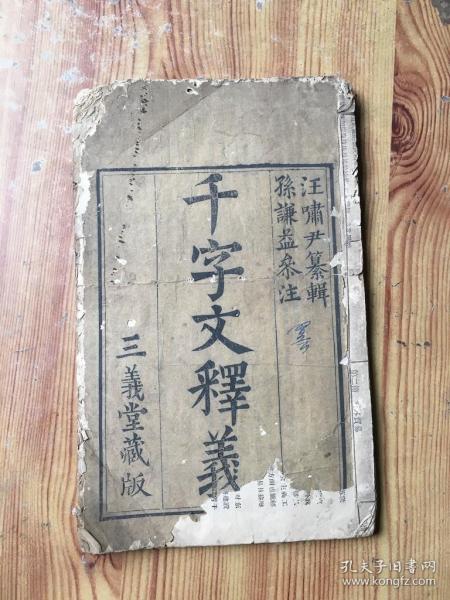 汪嘯尹纂輯
孫謙益叅注
千字文釋義
三義堂藏版
孔夫子旧书网
www.kongfz.com